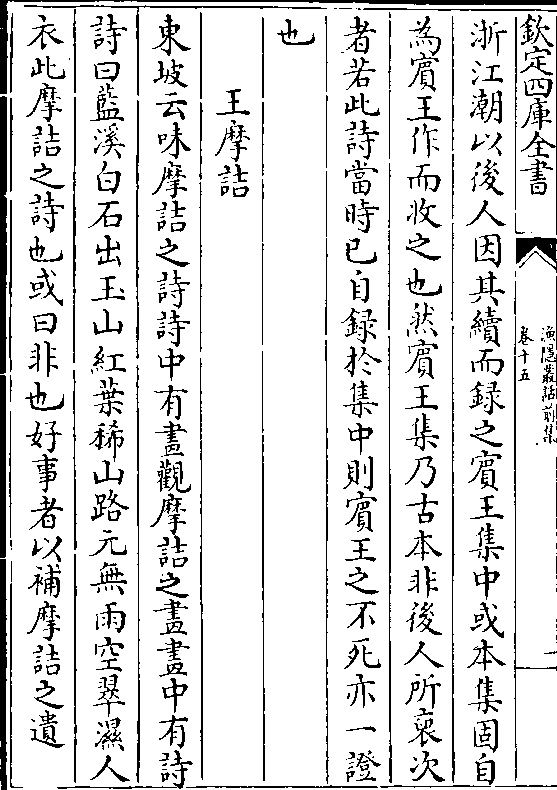 欽定四庫全書
漁隱叢話前集
卷十五
浙江潮以後人因其續而録之賔王集中或本集固自
為賔王作而收之也然賔王集乃古本非後人所裒次
者若此詩當時已自録於集中則賔王之不死亦一證
也
王摩詰
東坡云味摩詰之詩詩中有畫觀摩詰之畫畫中有詩
詩曰藍溪白石出玉山紅葉稀山路元無雨空翠濕人
衣此摩詰之詩也或曰非也好事者以補摩詰之遺